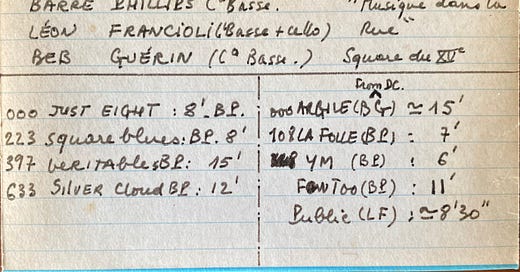 BARRE PHILLIPS (Cª Basse. "Musique dans la
LÉON FRANCIOLI (Basse + cello) Rue"
BEB GUÉRIN (Cª Basse.) Square du XVᵉ
000 JUST EIGHT : 8'. BP.
223 square blues : BP. 8'
397 VERITABLES BP : 15'
633 SILVER Cloud BP : 12'
From DC.
000 ARGILE (BG) ≃ 15'
108 LA FOLLE (BP) : 7'
YM (BP) : 6'
(BP) : 11'
Public (LF) : ≃ 8'30"